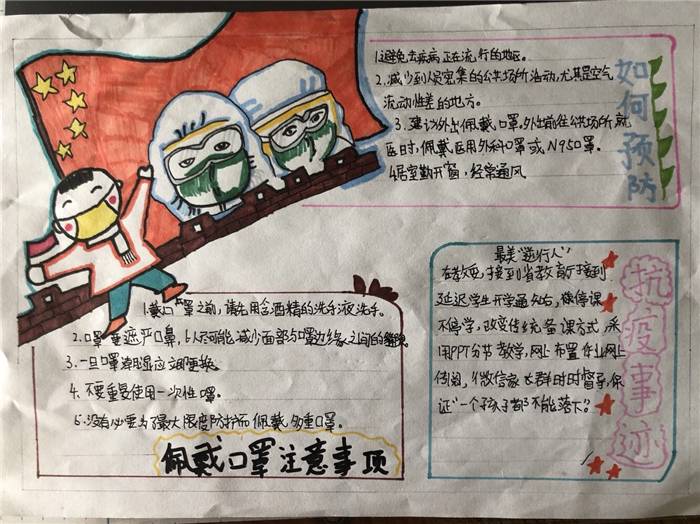 1.避免去疾病正在流行的地区。
2.减少到人员密集的公共场所活动,尤其是空气
流动性差的地方。
3.建议外出佩戴口罩。外出前往公共场所就
医时,佩戴医用外科口罩或N95口罩。
4.居室勤开窗,经常通风
如何预防
最美"逆行人"
接到省教育厅接到
延迟学生开学通知后,做停课
不停学,改变传统备课方式,采
用PPT分节教学,网上布置作业网上
微信家长群时时督导,保
证"一个孩子都不能落下?
抗疫事迹
1.戴口罩之前,请先用含酒精的洗手液洗手。
2.口罩要遮严口鼻,以尽可能减少面部与口罩边缘之间的缝隙
3.一旦口罩潮湿应立即更换
4.不要重复使用一次性口罩。
5.没有必要为了最大限度防护而佩戴多重口罩。
佩戴口罩注意事项